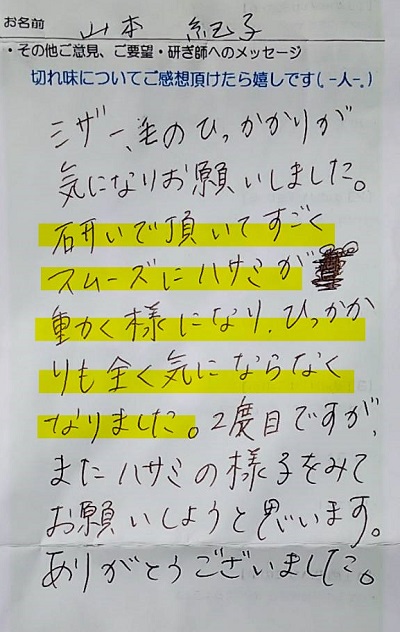 お名前 山本 紀子
・その他ご意見、ご要望・研ぎ師へのメッセージ
切れ味についてご感想頂けたら嬉しです(｡-人-｡)
ミザー、毛のひっかかりが
気になりお願いしました。
研いで頂いてすごく
スムーズにハサミが
動かく様になり、ひっかか
りも全く気にならなく
なりました。2度目ですが、
またハサミの様子をみて
お願いしようと思います。
ありがとうございました。